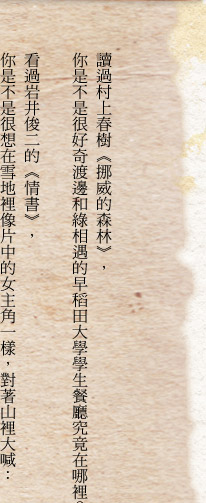 讀過村上春樹《挪威的森林》，
你是不是很好奇渡邊和綠相遇的早稻田大學學生餐廳究竟在哪裡
看過岩井俊二的《情書》，
你是不是很想在雪地裡像片中的女主角一樣，對著山裡大喊：